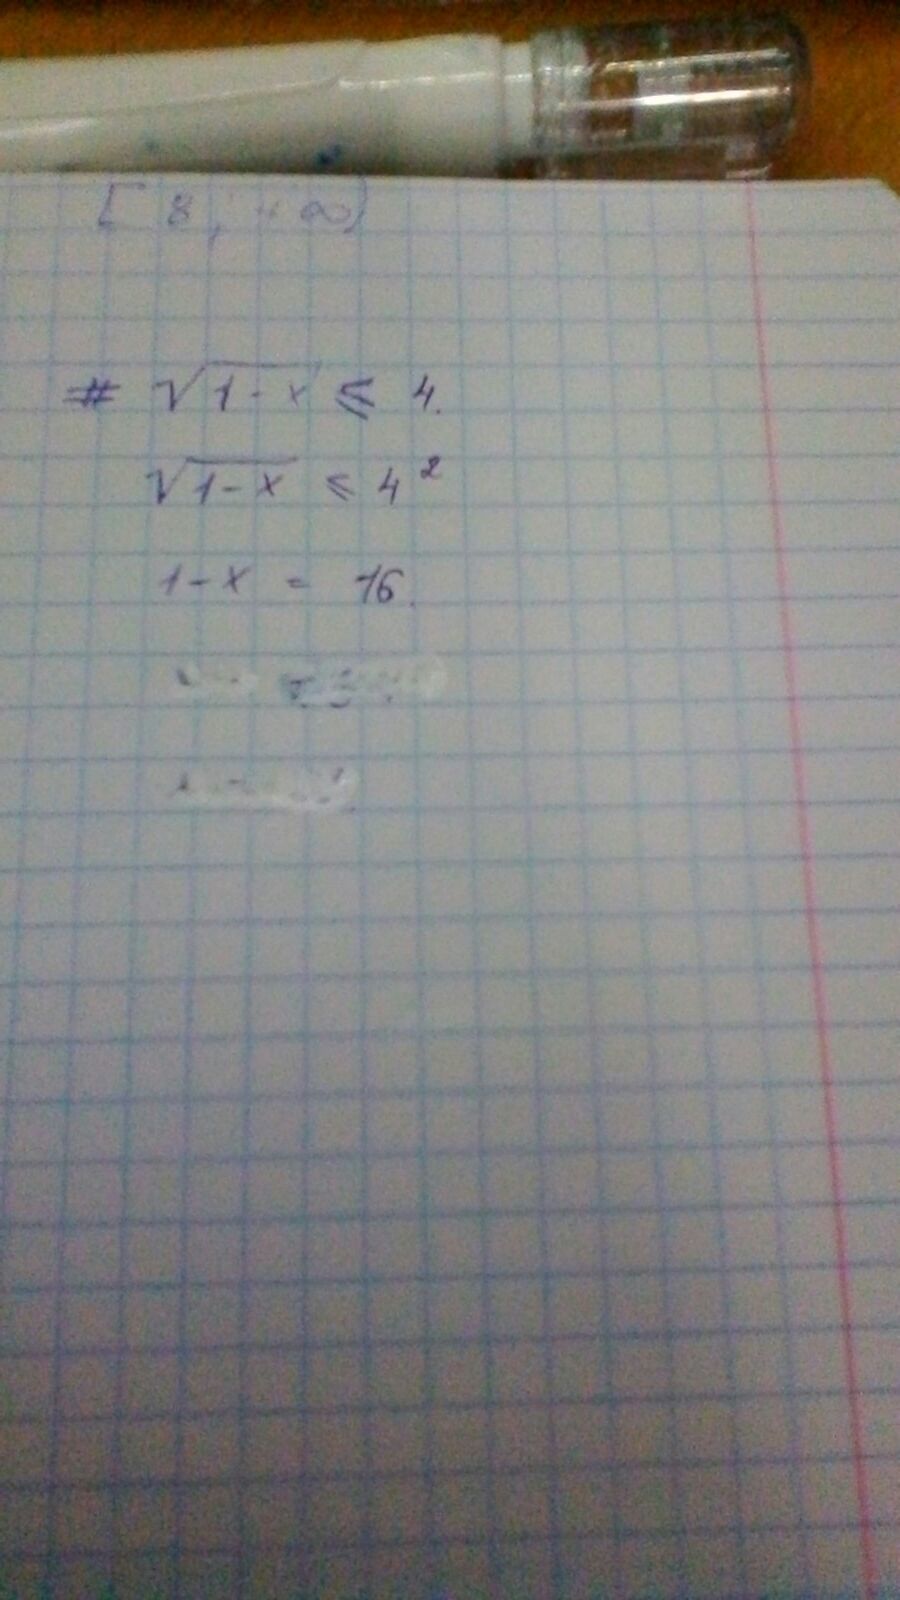 [ 8 ; + ∞)
# √1-x ≤ 4.
√1-x ≤ 4²
1-x = 16.